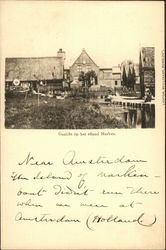 Gezicht op het eiland Marken.
Near Amsterdam
the Island of Marken -
dont didnt run there
when we were at
Amsterdam (Holland)